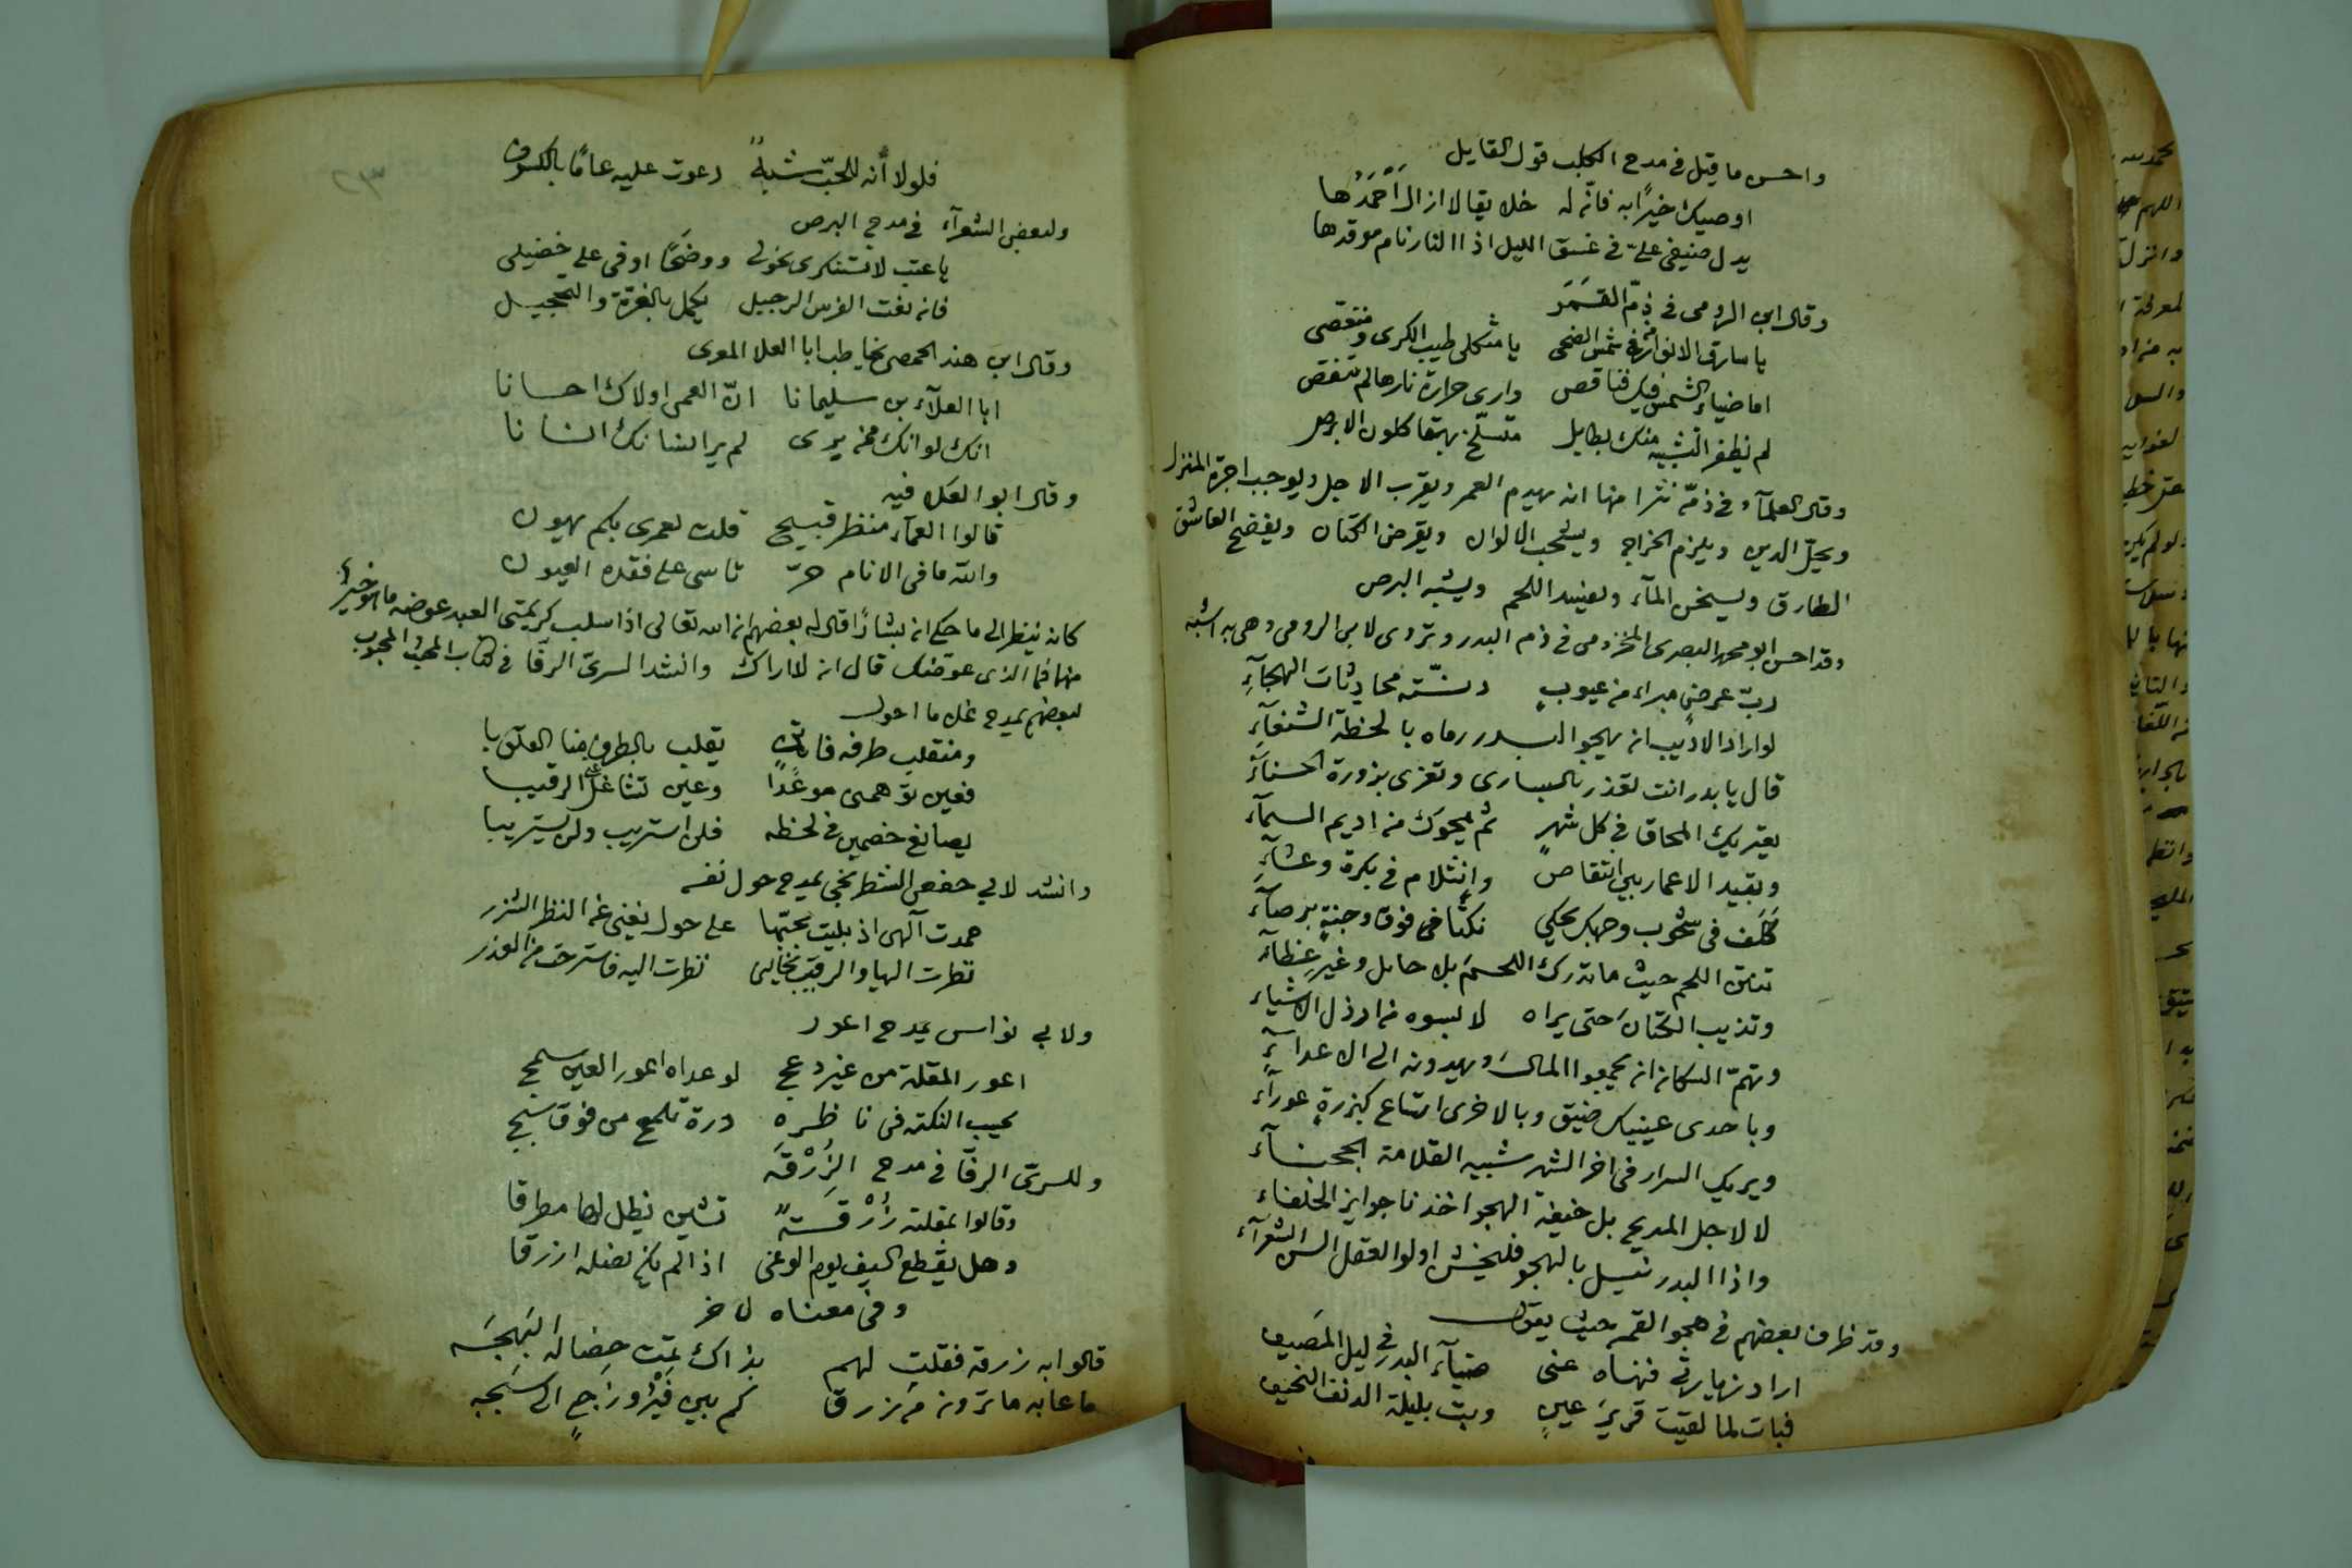 واحسن ما قيل في مدح الكلب قول القايل
اوصيك خيرًا به فانّه له خلايقا لا ازال اَحْمَدُها
يدل ضيفي علىّ في غسق الليل اذا النار نام موقدها
وقال ابن الرومي في ذمّ القَمَر
يا سارق الانوار من شمس الضحى يا مثكلي طيب الكرى ومنغصى
اما ضياء الشمس فيك فناقص وارى حرارة نارها لم تنقص
لم يظفر التشبيه منك بطايل متسلّخ بهقا كلون الابرص
وقال العلمآء في ذمّه نثرا منها انه يهدم العمر ويقرب الاجل ويوجب اجرة المنزل
ويحلّ الدين ويلزم الخراج ويشحب الالوان ويقرض الكتان ويفضح العاشق
الطارق ويسخن المآء ويفسد اللحم ويشبه البرص
وقد احسن ابو محمد البصرى المخزومى في ذم البدر وتروى لابن الرومى وهى به اشبه
ربّ عرضٍ مبراء من عيوبٍ دنسّته محادثات الهجآءِ
لو اراد الاديب ان يهجو البدر رماه بالخطة الشنعآءِ
قال يا بدر انت تغدر بالسارى وتغرى بزورة الحسنآءِ
يعتريك المحاق في كل شهرٍ ثم يمحوك من اديم السمآء
ويقيد الاعمار بين انتقاصٍ وانثلام في بكرة وعشآءِ
كَلَف في شحوب وجهك يحكي نكتًا فوق وجنةٍ برصآءِ
تنتن اللحم حيث ما تدرك اللحمَ بلا حايل وغيرِ غطآء
وتذيب الكتانَ حتى يراه لابسوه من ارذل الاشياء
وتهمّ السكان ان يجمعوا المالَ ويهدونه الى الاعدآءِ
وباحدى عينيك ضيق وبالاخرى اتساع كبزرةٍ عورآء
ويريك السرار في اخر الشهر شبيه القلامة الحجنآء
لا لاجل المديح بل خيفة الهجو اخذنا جوايز الخلفاء
واذا البدر نيل بالهجو فليخش اولوا العقل السن الشعرآء
وقد ظرف بعضهم في هجو القمر حيث يقول
اراد زيارتي فنهاه عنى ضيآء البدر في ليل المَصيف
فبات لما لقيت قريرَ عينٍ وبت بليلة الدنف النحيف
فلولا أنه للحبّ شبهٌ دعوت عليه عامًا بالكسوف
ولبعض الشعرآء في مدح البرص
يا عتب لا تستنكرى نحولى ووضحًا اوفى على خصيلى
فان نعت الفرس الرجيل يكمل بالغرّة والتحجيل
وقال ابن هند الحمصى يخاطب ابا العلا المعرى
ابا العلآء بن سليمانا انّ العمى اولاك احسانا
انك لو انك ممن يرى لم ير انسانك انسانا
وقال ابو العلا فيه
قالوا العمآء منظر قبيح قلت لعمرى بكم يهون
والله ما في الانام حرّ تاسى على فقده العيون
كانه ينظر الى ما حكى ان بشارًا قال له بعضهم ان الله تعالى اذا سلب كريمتى العبد عوضه ما هو خير
منها فما الذى عوضك قال ان لا اراك وانشد السرى الرفّا في كتاب المحب والمحبوب
لبعضهم يمدح غلاما احول
ومنقلبِ طرفه فاتكٍ يقلب بالطرف منا القلوبا
فعين توّهمنى موعدًا وعين تشاغل عنى الرقيبا
يصانع خصمين في لحظه فلن استريب ولن يستريبا
وانشد لابي حفص الشطرنجي يمدح حول نفسه
حمدت آلهى اذ بليت بحبّها على حول يغنى عن النظر الشزر
نظرت اليها والرقيب يخالنى نظرت اليه فاسترحت من العذر
ولابي نواس يمدح اعور
اعور المقلة من غير دعج لو عداه اعور العين سمج
تحسب النكته في ناظرهِ درة تلمع من فوق سبج
وللسرىّ الرفّا في مدح الزُرْقَه
وقالوا بمقلته زُرْقةٌ تشين يظل لها مطرقا
وهل يقطع السيف يوم الوغى اذا لم يكن نصله ازرقا
وفي معناه لاخر
قالوا به زرقة فقلت لهم بذاك تمّت خصاله البَهِجَه
ما عابه ما ترون من زرق كم بين فَيْرُوزَجٍ الى سَبَجه
٢٣